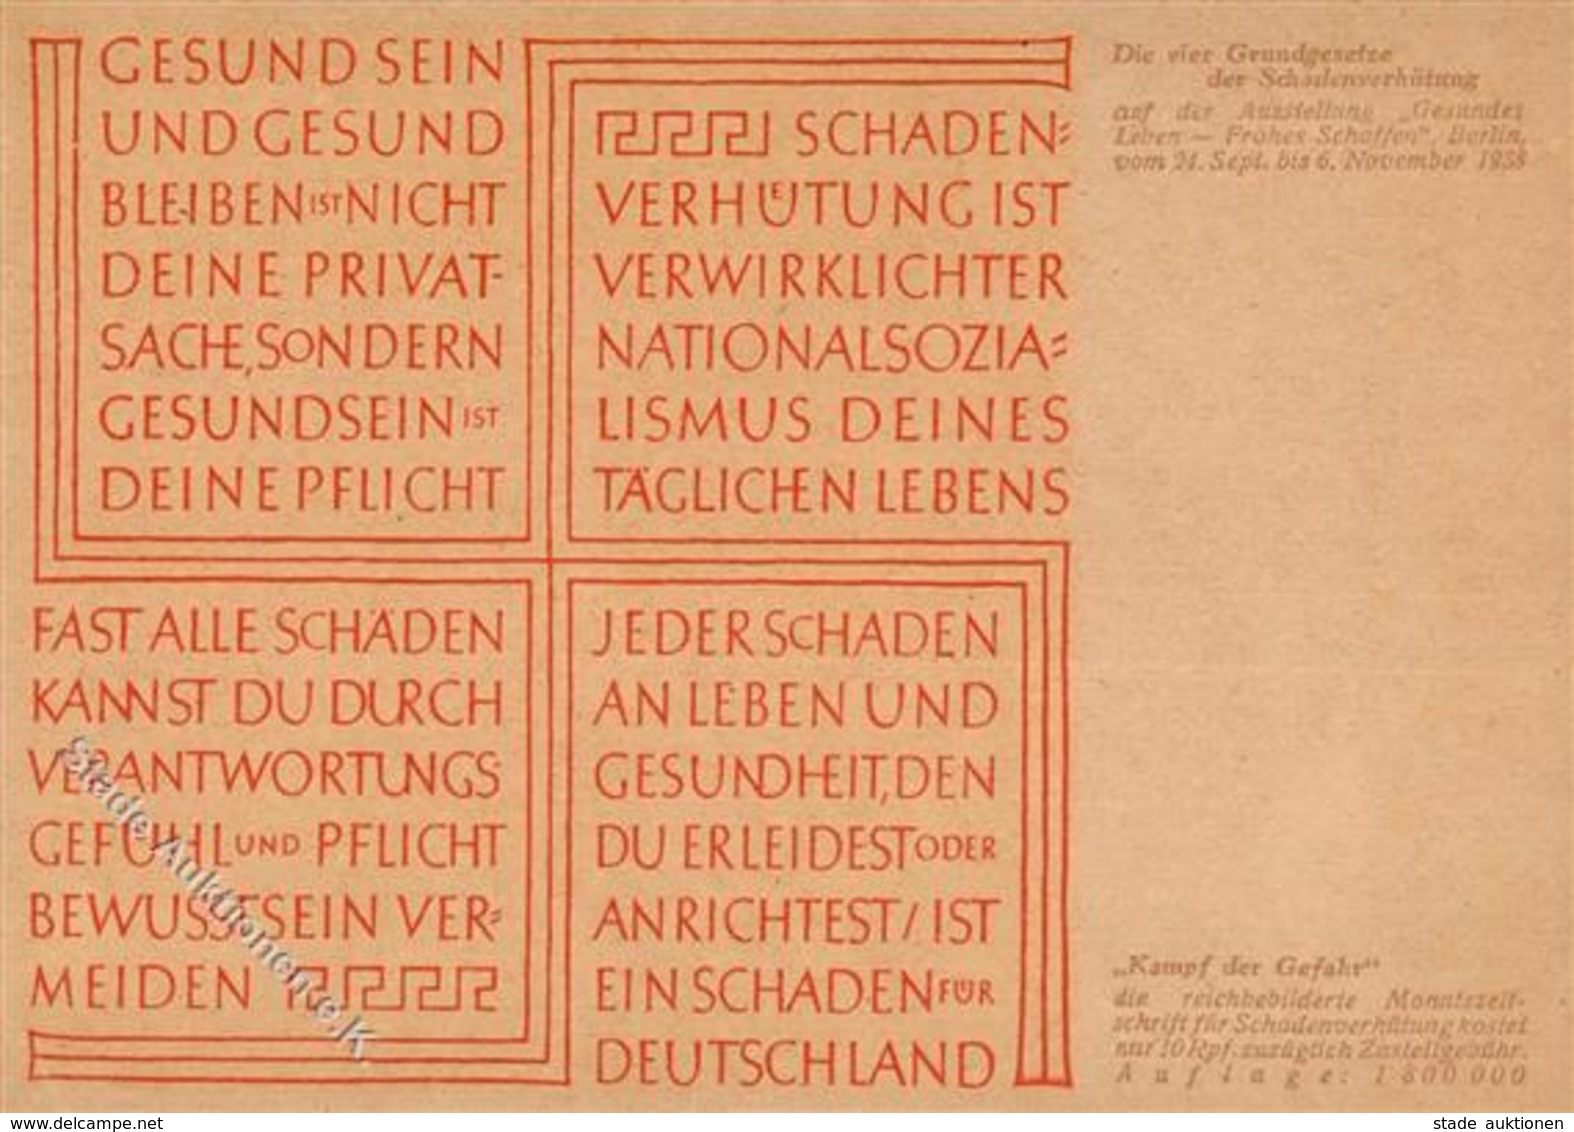 GESUND SEIN
UND GESUND
BLEIBEN IST NICHT
DEINE PRIVAT-
SACHE, SONDERN
GESUNDSEIN IST
DEINE PFLICHT
SCHADEN=
VERHUETUNG IST
VERWIRKLICHTER
NATIONALSOZIA=
LISMUS DEINES
TÄGLICHEN LEBENS
FAST ALLE SCHÄDEN
KANNST DU DURCH
VERANTWORTUNGS
GEFÜHL UND PFLICHT
BEWUSSTSEIN VER=
MEIDEN
JEDER SCHADEN
AN LEBEN UND
GESUNDHEIT, DEN
DU ERLEIDEST ODER
ANRICHTEST / IST
EIN SCHADEN FÜR
DEUTSCHLAND
Die vier Grundgesetze
der Schadenverhütung
auf der Ausstellung „Gesundes
Leben — Frohes Schaffen“, Berlin,
vom 24. Sept. bis 6. November 1938
„Kampf der Gefahr“
die reichbebilderte Monatszeit-
schrift für Schadenverhütung kostet
nur 10 Rpf. zuzüglich Zustellgebühr.
Auflage: 1 800 000
Stade Auktionen e.K.
www.ansichtskartenversand.com
stade auktionen